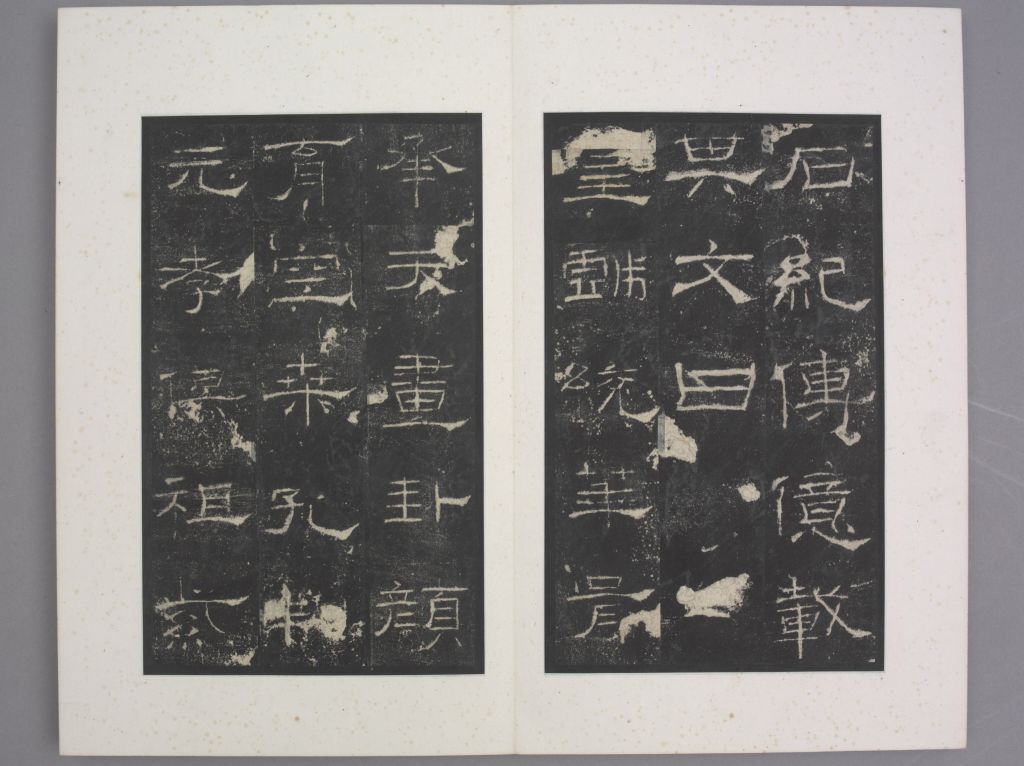 石紀傳億載
其文曰
皇戲統華胥
承天畫卦顏
育空桑孔制
元孝俱祖紫